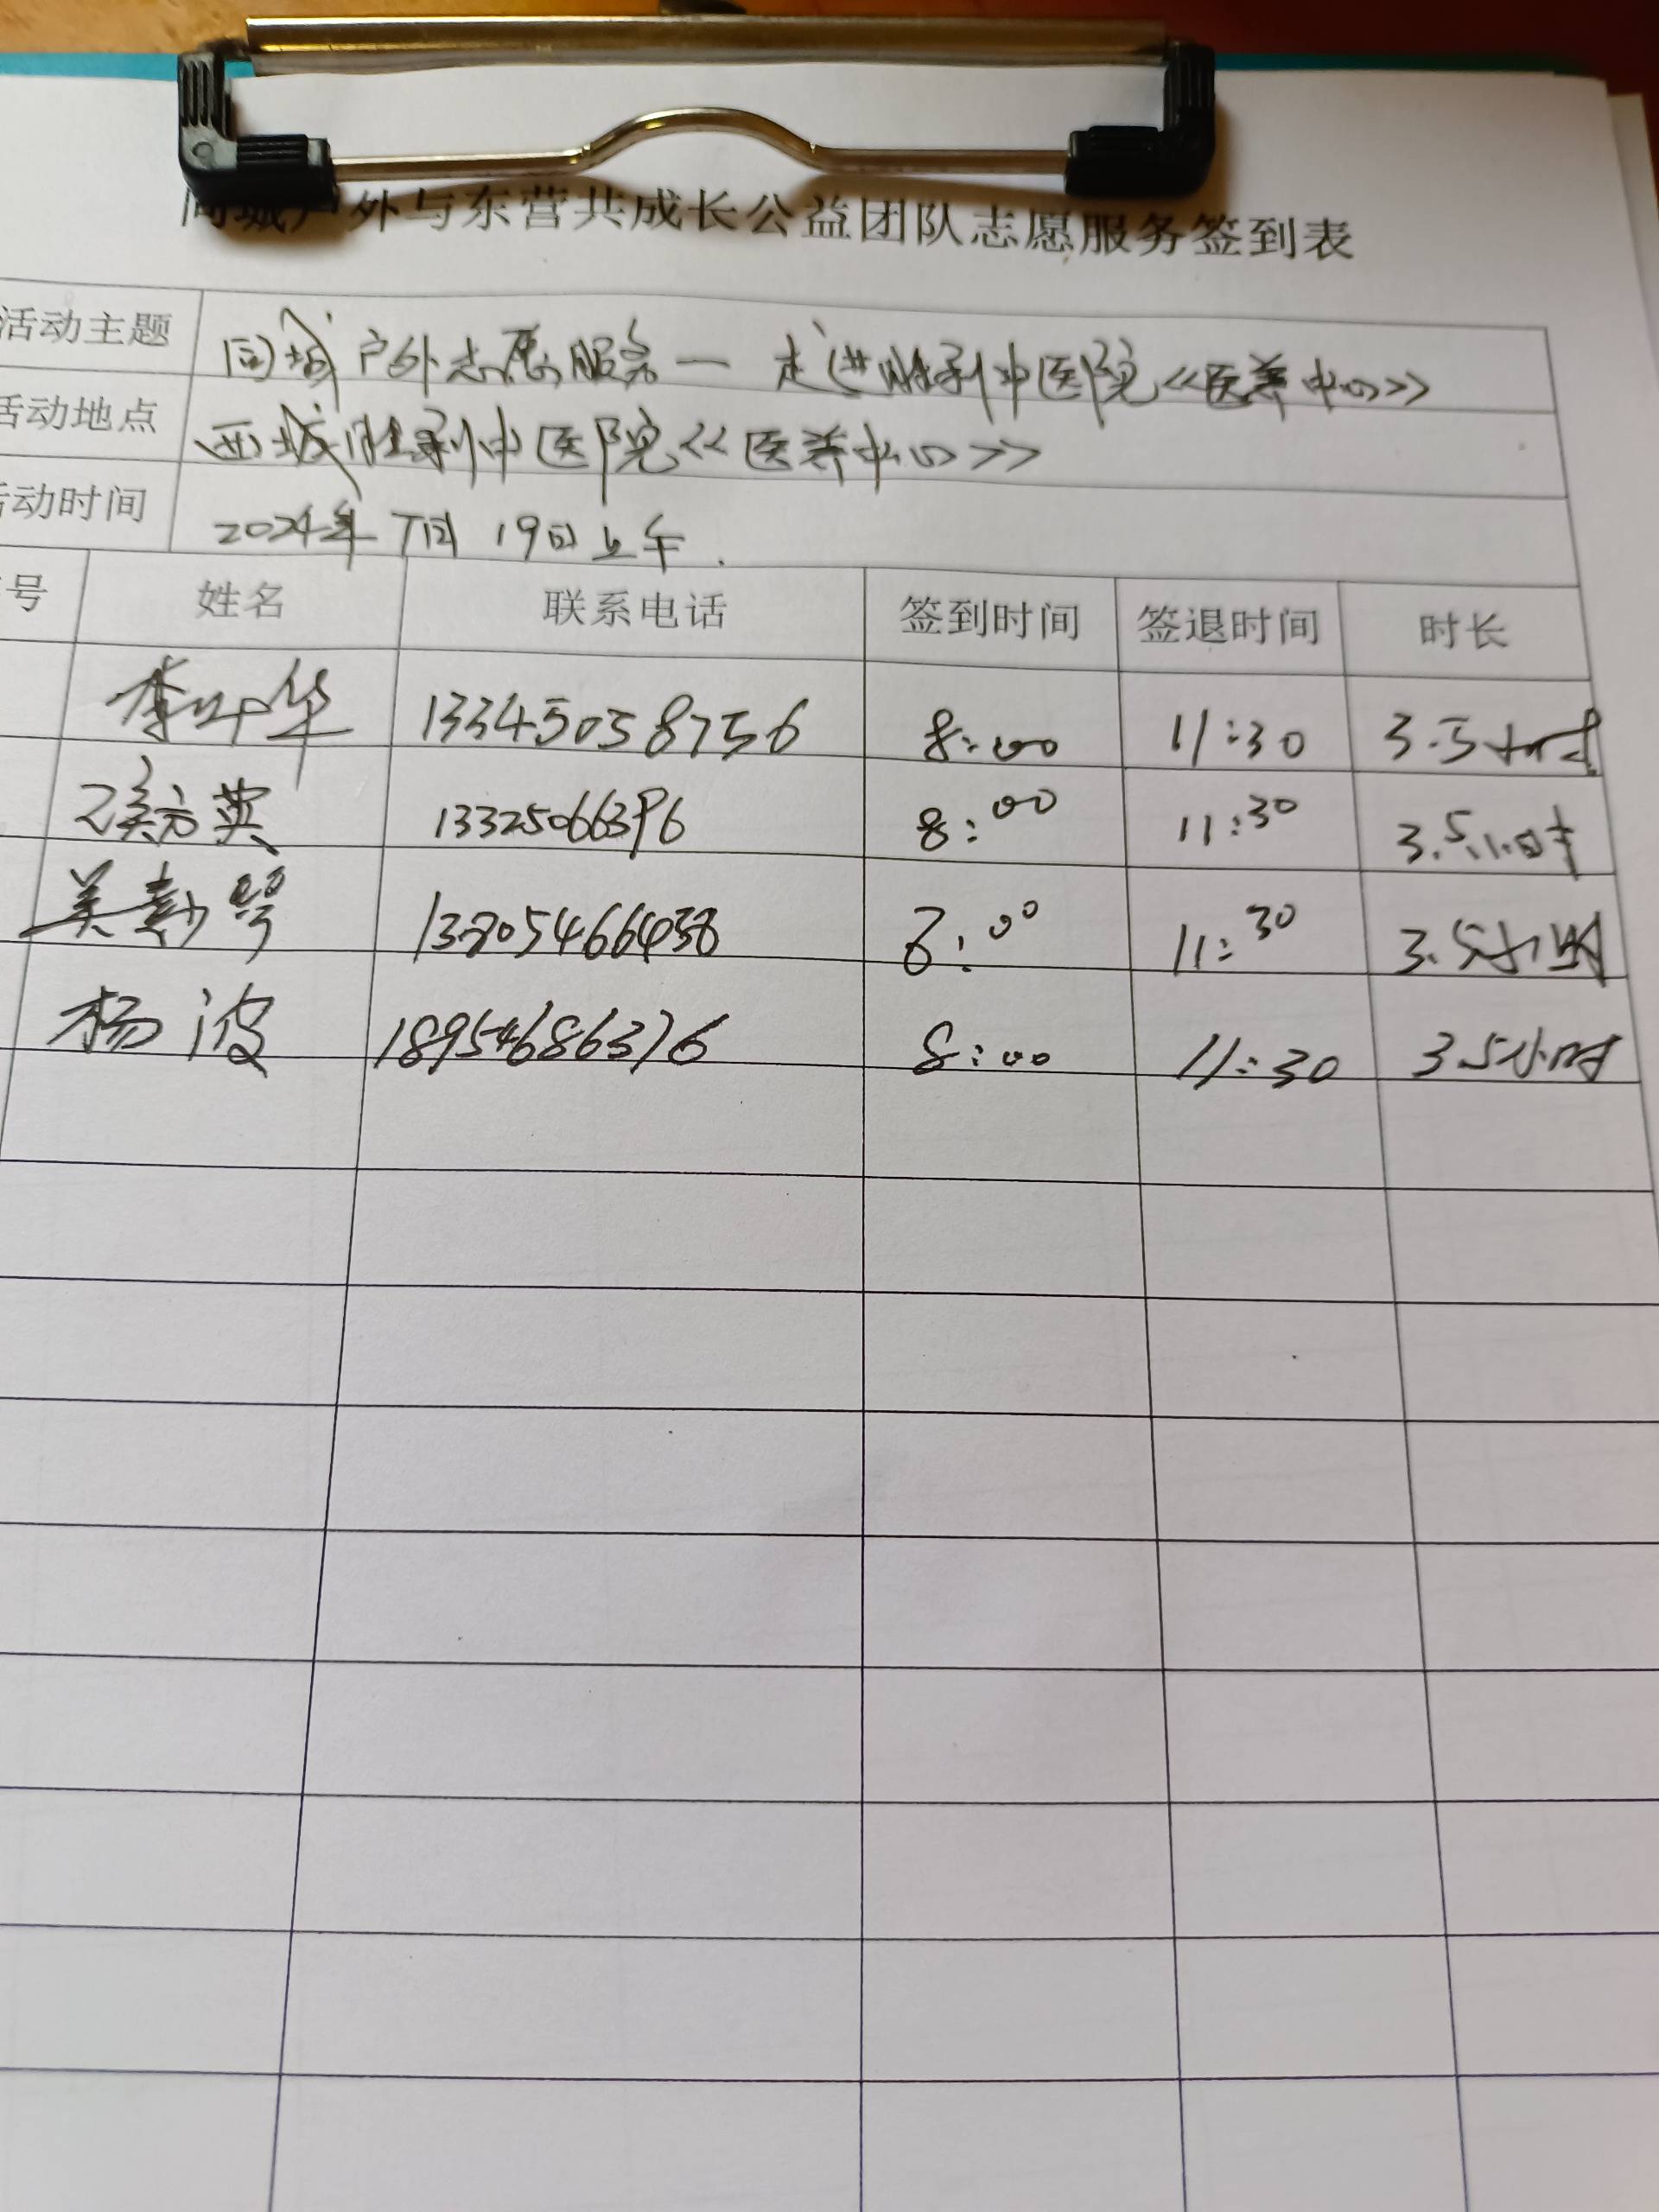 同城户外与东营共成长公益团队志愿服务签到表
活动主题 同城户外志愿服务一走进胜利中医院《医养中心》
活动地点 西城胜利中医院《医养中心》
活动时间 2024年7月19日上午.
号 姓名 联系电话 签到时间 签退时间 时长
李叶华 13345058756 8:00 11:30 3.5小时
英 13325066396 8:00 11:30 3.5小时
8:00 11:30 3.5小时
杨波 18954686376 8:00 11:30 3.5小时